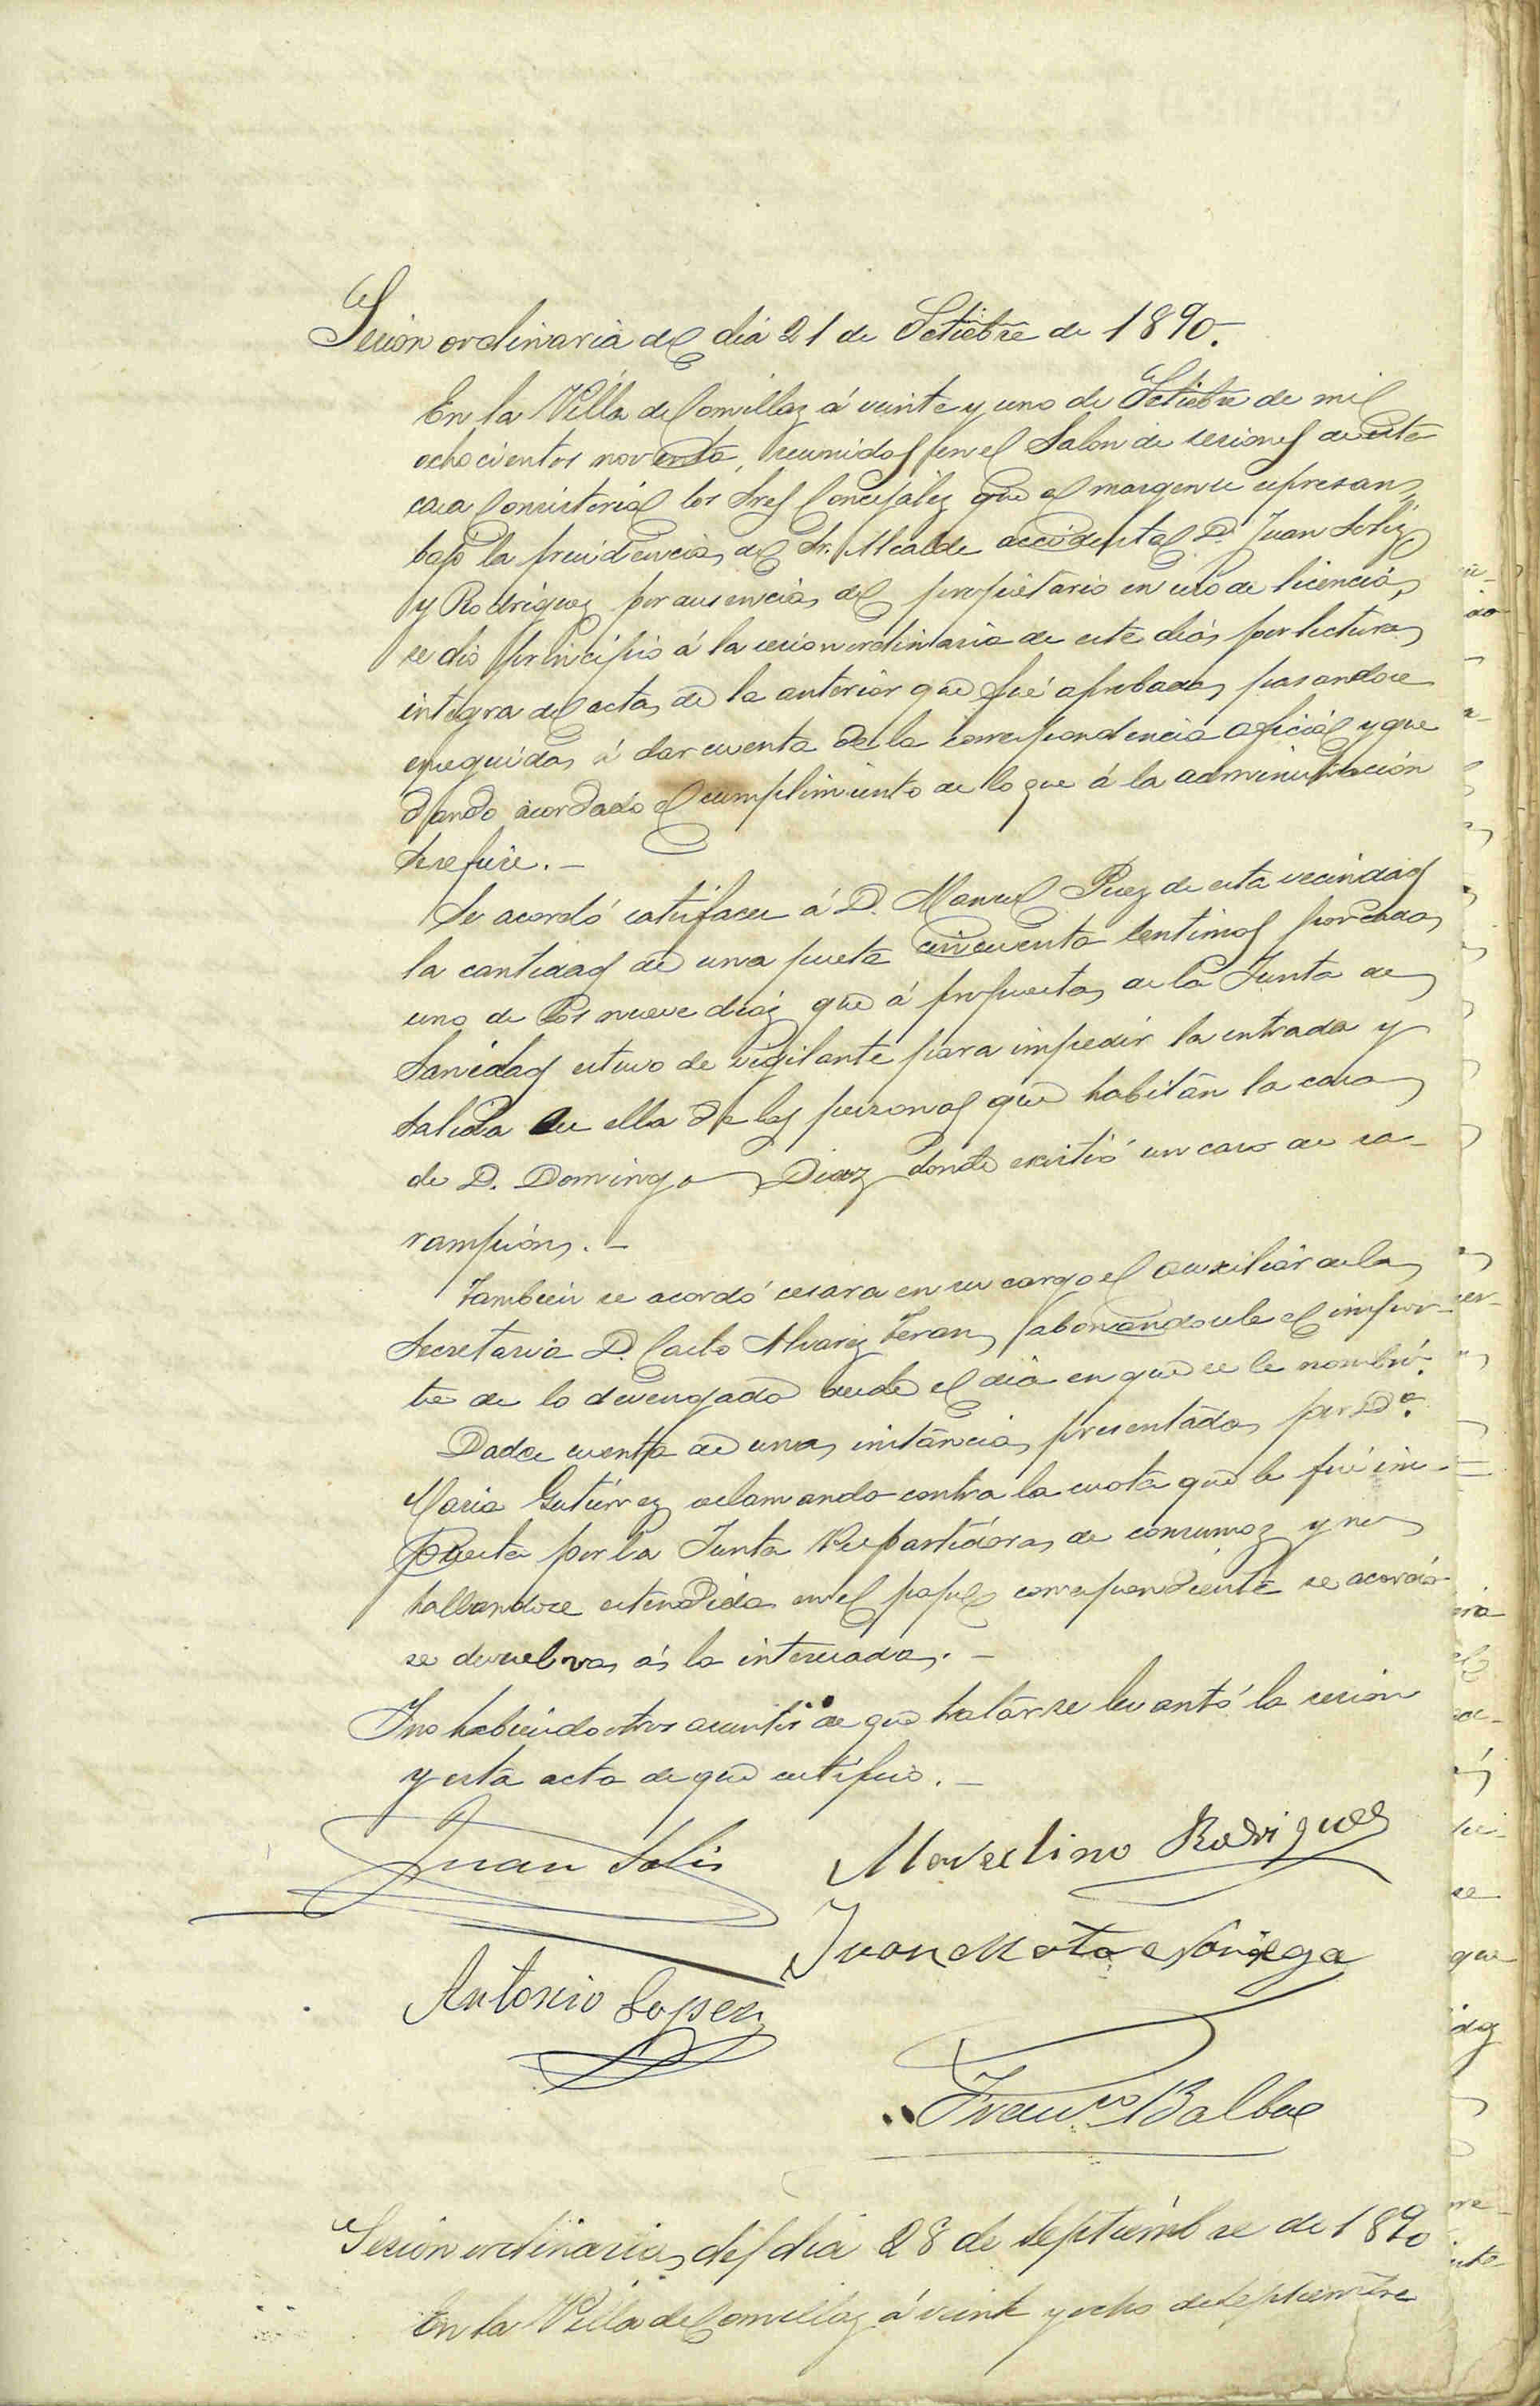 Sesion ordinaria del dia 21 de Setiebre de 1890.
En la Villa de Comillas á veinte y uno de Setiebre de mil
ochocientos noventa, reunidos en el Salon de sesiones de esta
casa Consistorial los Sres Concejales que al margen se espresan,
bajo la presidencia del Sr. Alcalde accidental D. Juan Solis
y Rodriguez por ausencia del propietario en uso de licencia,
se dió principio á la sesion ordinaria de este dia por lectura
integra del acta de la anterior que fué aprobada, pasandose
enseguida á dar cuenta de la correspondencia oficial y que
dando acordado el cumplimiento de lo que á la administración
se refiere.—
Se acordó satisfacer á D. Manuel Perez de esta vecindad
la cantidad de una peseta cincuenta centimos por cada
uno de los nueve dias que á propuesta de la Junta de
Sanidad estuvo de vigilante para impedir la entrada y
salida de ella de las personas que habitan la casa
de D. Domingo Diaz donde existió un caso de sa-
rampión.—
Tambien se acordó cesara en su cargo el auxiliar de la
Secretaria D. Casto Alvarez Teran, abonandosele el impor-
te de lo devengado desde el dia en que se le nombró.
Dada cuenta de una instancia presentada por Dª.
Maria Gutierrez reclamando contra la cuota que le fué im-
puesta por la Junta Repartidora de consumos y no
hallandose estendida en el papel correspondiente se acordó
se devuelva á la interesada.—
Y no habiendo otros asuntos de que tratar se levantó la sesion
y esta acta de que certifico.—
Juan Solis
Marcelino Rodriguez
Juan Mata Noriega
Antonio Lopez
Franco Balbas
Sesion ordinaria del dia 28 de septiembre de 1890
En la Villa de Comillas á veinte y ocho de septiembre